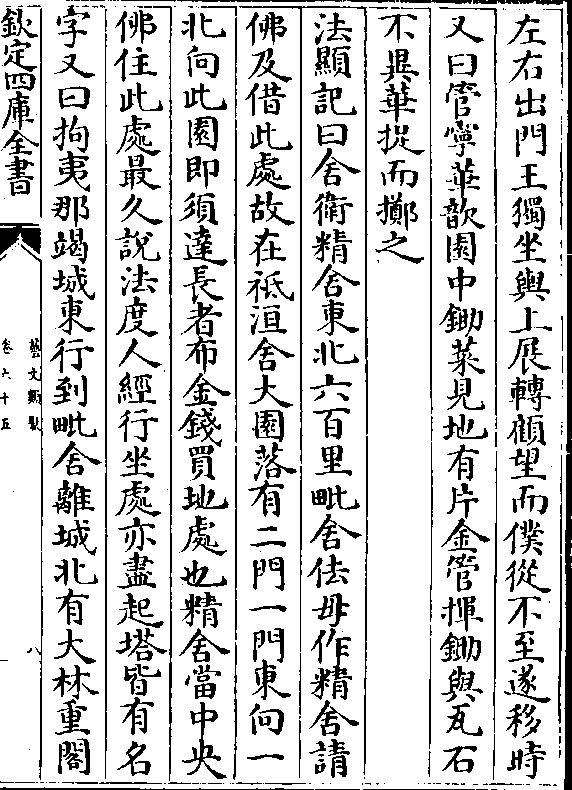 左右出門王獨坐輿上展轉顧望而僕從不至遂移時
又曰管寧華歆園中鋤菜見地有片金管揮鋤與瓦石
不異華捉而擲之
法顯記曰舍衛精舍東北六百里毗舍佉母作精舍請
佛及借此處故在祗洹舍大園落有二門一門東向一
北向此園即須達長者布金錢買地處也精舍當中央
佛住此處最久說法度人經行坐處亦盡起塔皆有名
字又曰拘夷那竭城東行到毗舍離城北有大林重閣
欽定四庫全書
藝文類聚
卷六十五
八